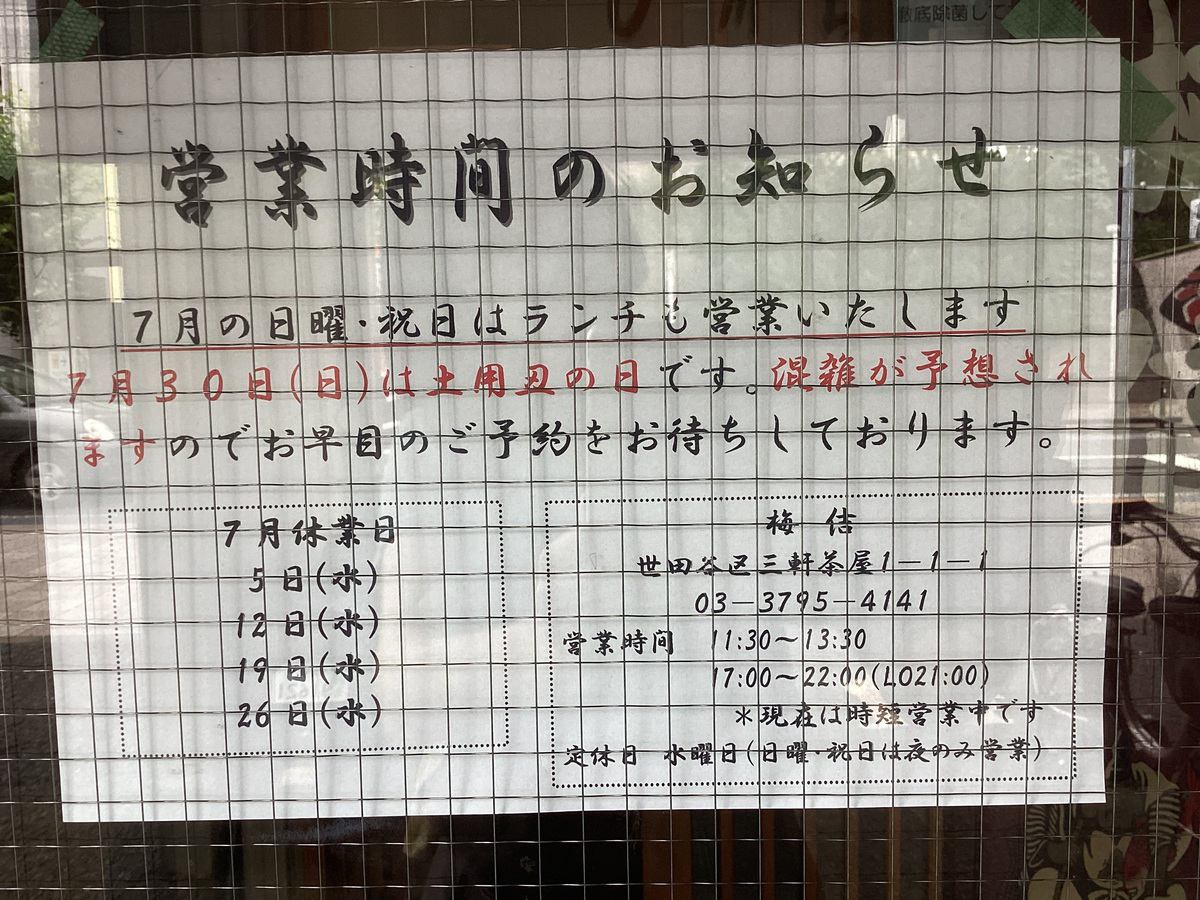 徹底除菌して
営業時間のお知らせ
7月の日曜・祝日はランチも営業いたします
7月30日(日)は土用丑の日です。混雑が予想され
ますのでお早目のご予約をお待ちしております。
7月休業日
5日(水)
12日(水)
19日(水)
26日(水)
梅 佶
世田谷区三軒茶屋1－1－1
03－3795－4141
営業時間 11:30～13:30
17:00～22:00(LO21:00)
＊現在は時短営業中です
定休日 水曜日(日曜・祝日は夜のみ営業)